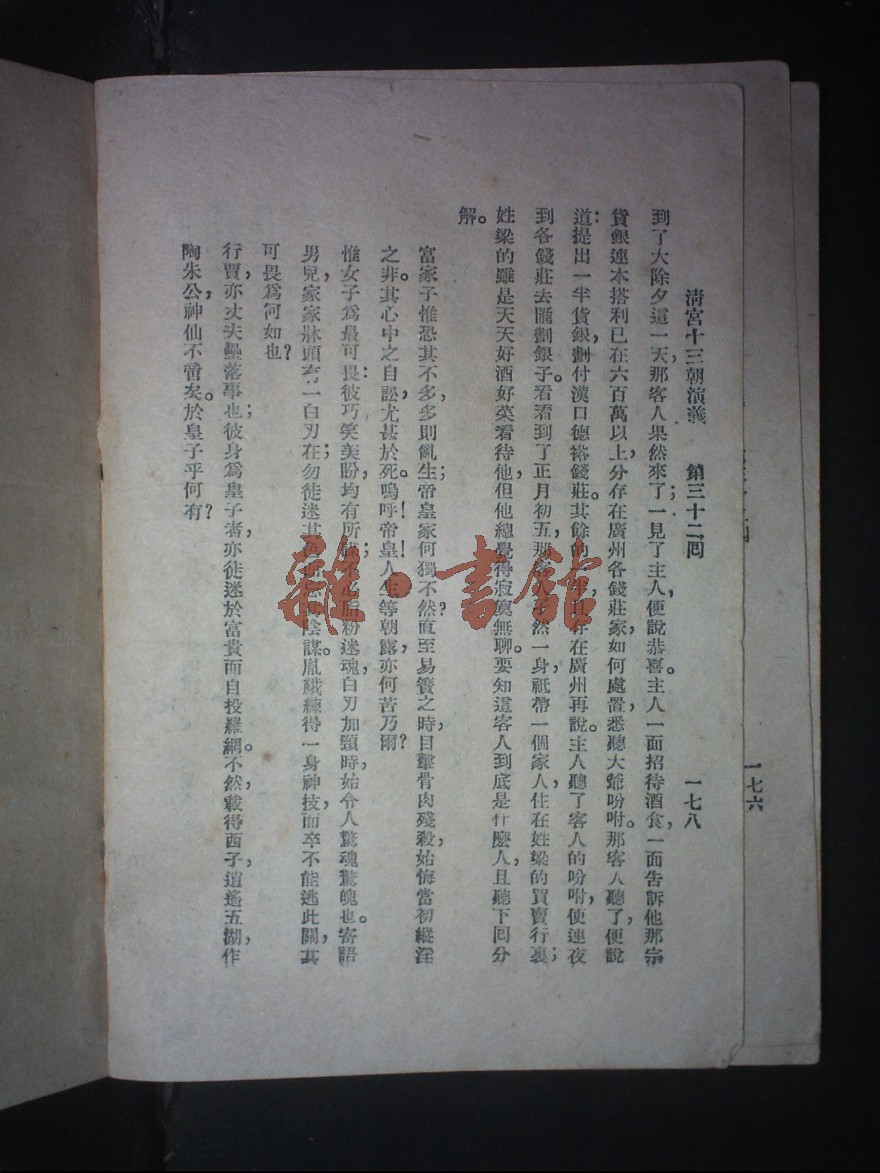 清宮十三朝演義　第三十二回　一七八
到了大除夕這一天，那客人果然來了；一見了主人，便說恭喜。主人一面招待酒食，一面告訴他那宗
貨銀連本搭利已在六百萬以上，分存在廣州各錢莊家，如何處置，悉聽大爺吩咐。那客人聽了，便說
道：提出一半貨銀，劃付漢口德裕錢莊。其餘的一半，且存在廣州再說。主人聽了客人的吩咐，便連夜
到各錢莊去匯劃銀子。看看到了正月初五，那客人孑然一身，祗帶一個家人，住在姓梁的買賣行裏；
姓梁的雖是天天好酒好菜看待他，但他總覺得寂寞無聊。要知這客人到底是什麼人，且聽下回分
解。
富家子惟恐其不多，多則亂生；帝皇家何獨不然？直至易簀之時，目擊骨肉殘殺，始悔當初縱淫
之非。其心中之自訟，尤甚於死。嗚呼！帝皇！人生等朝露，亦何苦乃爾？
惟女子爲最可畏：彼巧笑美盼，均有所 脂粉迷魂，白刃加頸時，始令人驚魂驚魄也。寄語
男兒，家家牀頭有一白刃在；勿徒迷其色而忘其陰謀。胤䄉練得一身神技，而卒不能逃此關，其
可畏爲何如也？
行賈，亦丈夫壘落事也；彼身爲皇子者，亦徒迷於富貴而自投羅網。不然，載得西子，逍遙五湖，作
陶朱公，神仙不啻矣。於皇子乎何有？
一七六
雜·書館